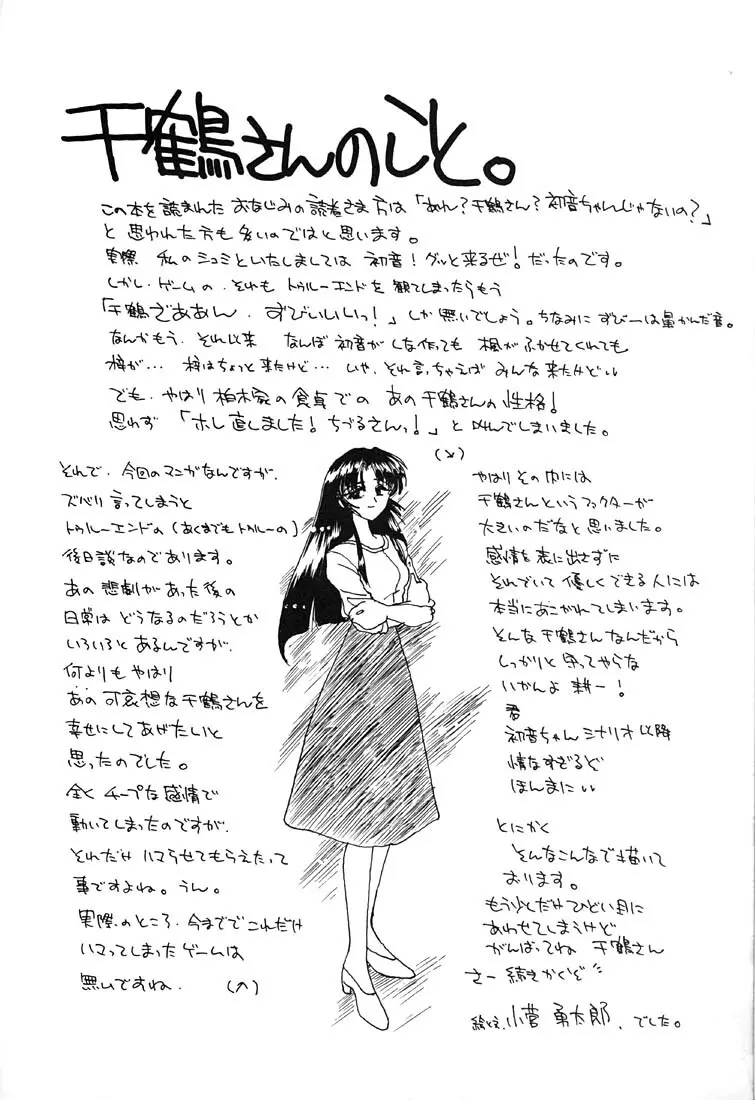 千鶴さんのこと。
この本を読まれた おなじみの読者さま方は「あれ?千鶴さん?初音ちゃんじゃないの?」
と 思われた方も多いのではと思います。
実際 私のシュミといたしましては 初音!グッと来るぜ!だったのです。
しかし、ゲームの、それも トゥルーエンドを観てしまったらもう
「千鶴ざぁああん、ずびいいいっ!」しか無いでしょう。ちなみに ずびーは鼻かんだ音。
なんかもう、それ以来 なんぼ初音がしな作っても 楓がふかせてくれても
梓が… 梓はちょっと来たけど… いや、それ言っちゃえば みんな来たけどい
でも、やはり柏木家の食卓での あの千鶴さんの性格!
思わず「ホレ直しました!ちづるさんっ!」と叫んでしまいました。
それで、今回のマンガなんですが、
ズバリ言ってしまうと
トゥルーエンドの(あくまでもトゥルーの)
後日談なのであります。
あの 悲劇があった後の
日常は どうなるのだろうとか
いろいろと あるんですが、
何よりも やはり
あの 可哀想な千鶴さんを
幸せにしてあげたいと
思ったのでした。
全く チープな感情で
動いてしまったのですが、
それだけ ハマらせてもらえたって
事ですよね。うん。
実際のところ、今まででこれだけ
ハマってしまったゲームは
無いですね。 (へ)
(め)
やはり その中には
千鶴さんというファクターが
大きいのだなと思いました。
感情を表に出さずに
それでいて 優しくできる人には
本当にあこがれてしまいます。
そんな千鶴さんなんだから
しっかりと 守ってやらな
いかんよ 耕一!
君
初音ちゃんシナリオ以降
情なすぎるど
ほんまにい
とにかく
そんなこんなで描いて
おります。
もう少しだけひどい目に
あわせてしまうけど
がんばってね 千鶴さん
さー続きかくぞ
絵と文、小菅 勇太郎、でした。